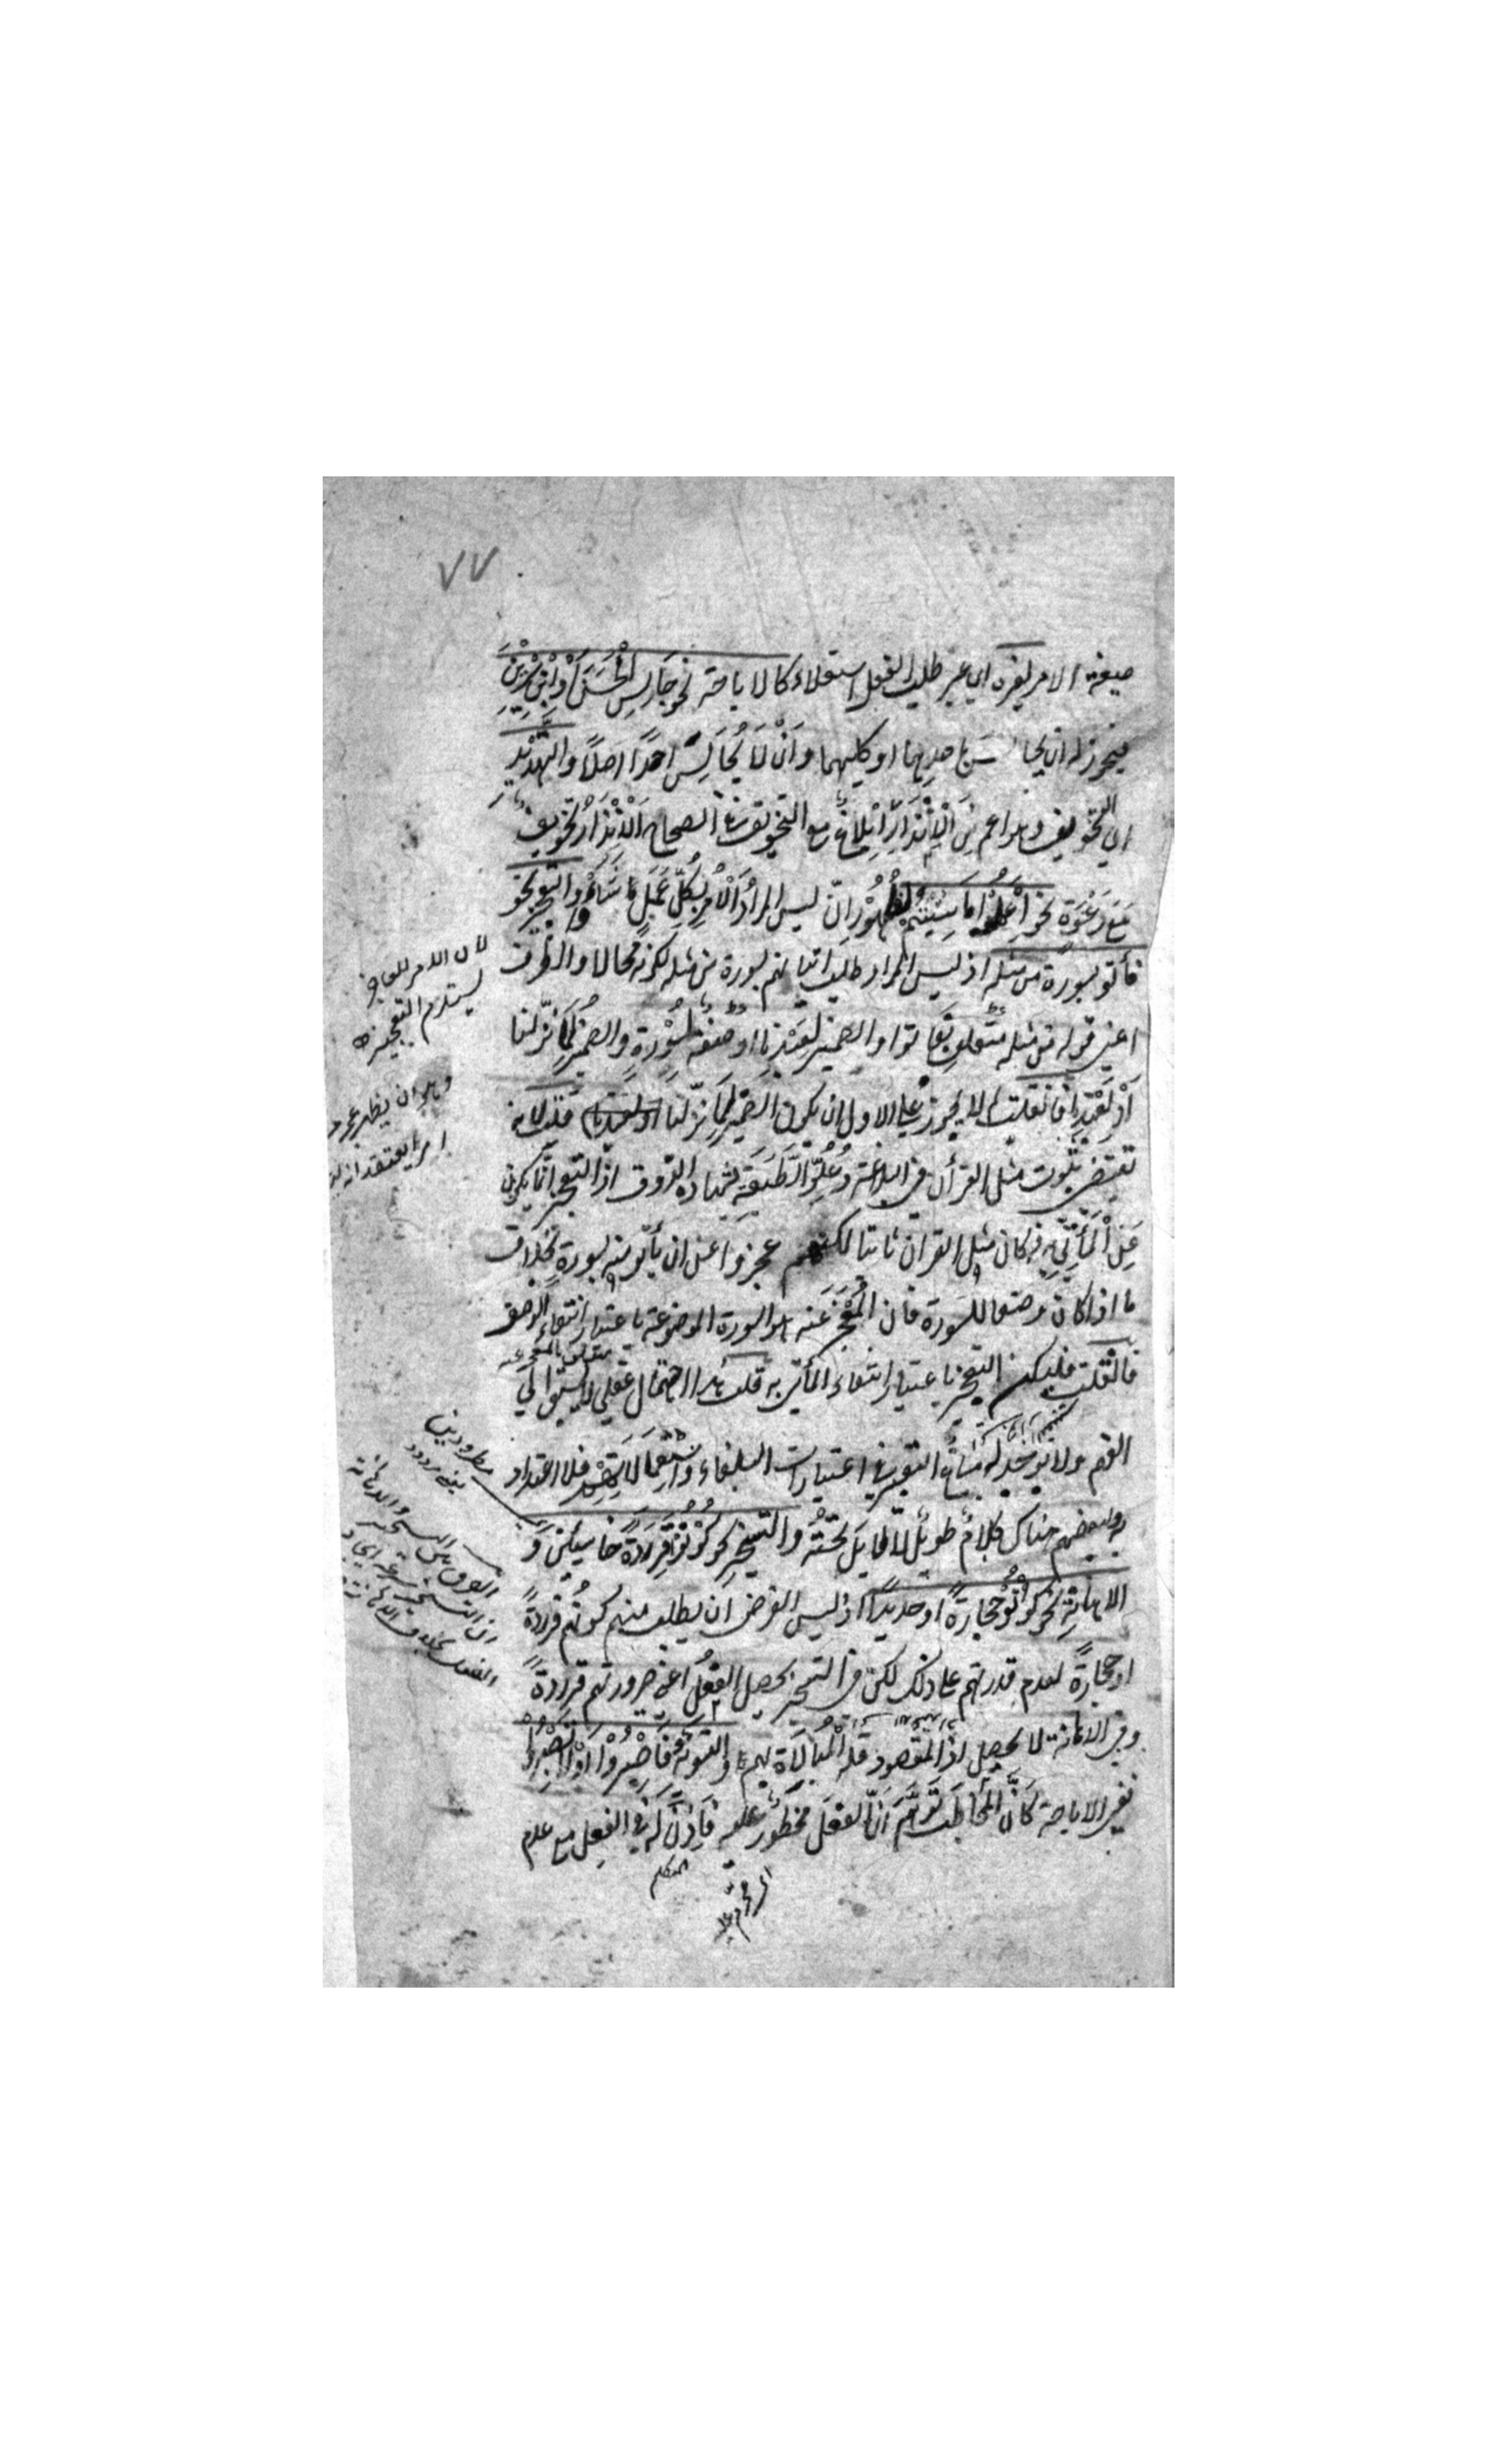 ٧٧
صيغة الامر لغيره اي غير طلب الفعل استعلاء كالاباحة نحو جَالِسِ الْحَسَنَ أَوْ ابْنَ سِيرِيْنَ
فيجوز له ان يجالس احدهما او كليهما وَاَنْ لَا يُجَالِسَ احدًا اصلاً والتَّهْدِيْدِ
اي التخويف وهو اعم مِنَ الْاِنْذَارِ اِبْلَاغٌ مع التخويف وفي الصحاح اَلْاِنْذَارُ تخويفٌ
مَعَ دَعْوَةٍ نحو اِعْمَلُوْا مَا شِئْتُمْ لظُهُوْرِ انّ ليس المرادُ اَلْاَمْرَ بِكُلِّ عَمَلٍ شَاؤُا والتعجيز نحو
فأتو بسورة من مثله اذ ليس المراد طلب اتيانهم بسورة من مثله لكونه محالا والظرف
اعني قوله من مثله متعلق بفأتوا والضمير لعَبْدِنا او صفةٌ لسُوْرَةٍ والضمير لِمَا نزّلنا
اَوْ لِعَبْدِنا فان قلت لِمَ لا يجوز على الاول ان يكون الضمير لِمَا نزّلنا قلت لانه
تقتضي ثبوت مثل القرأن في البلاغة وَعُلُوِّ الطَّبَقَةِ بشهادة الذوق اذ التعجيز انما يكون
عَنِ الْمَأْتِيِّ به فكان مثل القران ثابتا لكنهم عجزوا عن ان يأتوا منه بسورة بخلاف
ما اذا كان وصفا للسورة فان الْمُعْجَزَ عَنه هو السورة الموضوعة باعتبار انتفاء الوصف
فان قلت فليكن التعجيز باعتبار انتفاء المأتي به قلت هذا احتمال عقلي لا يسبق الي
الفهم ولا يوجد له مساغ التعبير في اعتبارات البلغاء واسْتِعْمَالَاتِهِمْ فلا اعتداد
به ولبعضهم هناك كلامٌ طويلٌ لا طايلَ تَحْتَهُ والتسخير نحو كُوْنُوْا قِرَدَةً خاسئين وَ
الاهانةِ نحو كُوْنُوْا حِجَارَةً او حديدًا اذ ليس الغرض ان يطلب منهم كونهم قردةً
او حجارةً لعدم قدرتهم على ذلك لكن في التسخير يحصل الفعلُ اعني صيرورتهم قردةً
وفي الاهانة لا يحصل اذ المقصود قلة الْمُبَالَاةِ بهم والتسوية نحو فَاصْبِرُوْا اَوْ لَا تَصْبِرُوْا
ففي الاباحة كَاَنَّ الْمُخَاطَبَ تَوَهَّمَ اَنَّ الفعلَ محظُورٌ عليه فَأَذِنَ لَهُ في الفعل مع عدم
المتكلم
لان الامر للعاجز
يستلزم التعجيز
مطرودين
الفرق بين التسخير والاهانة
ان التسخير سرعة ايجاد
الفعل بخلاف الاهانة
متعلق بالمعجز عنه